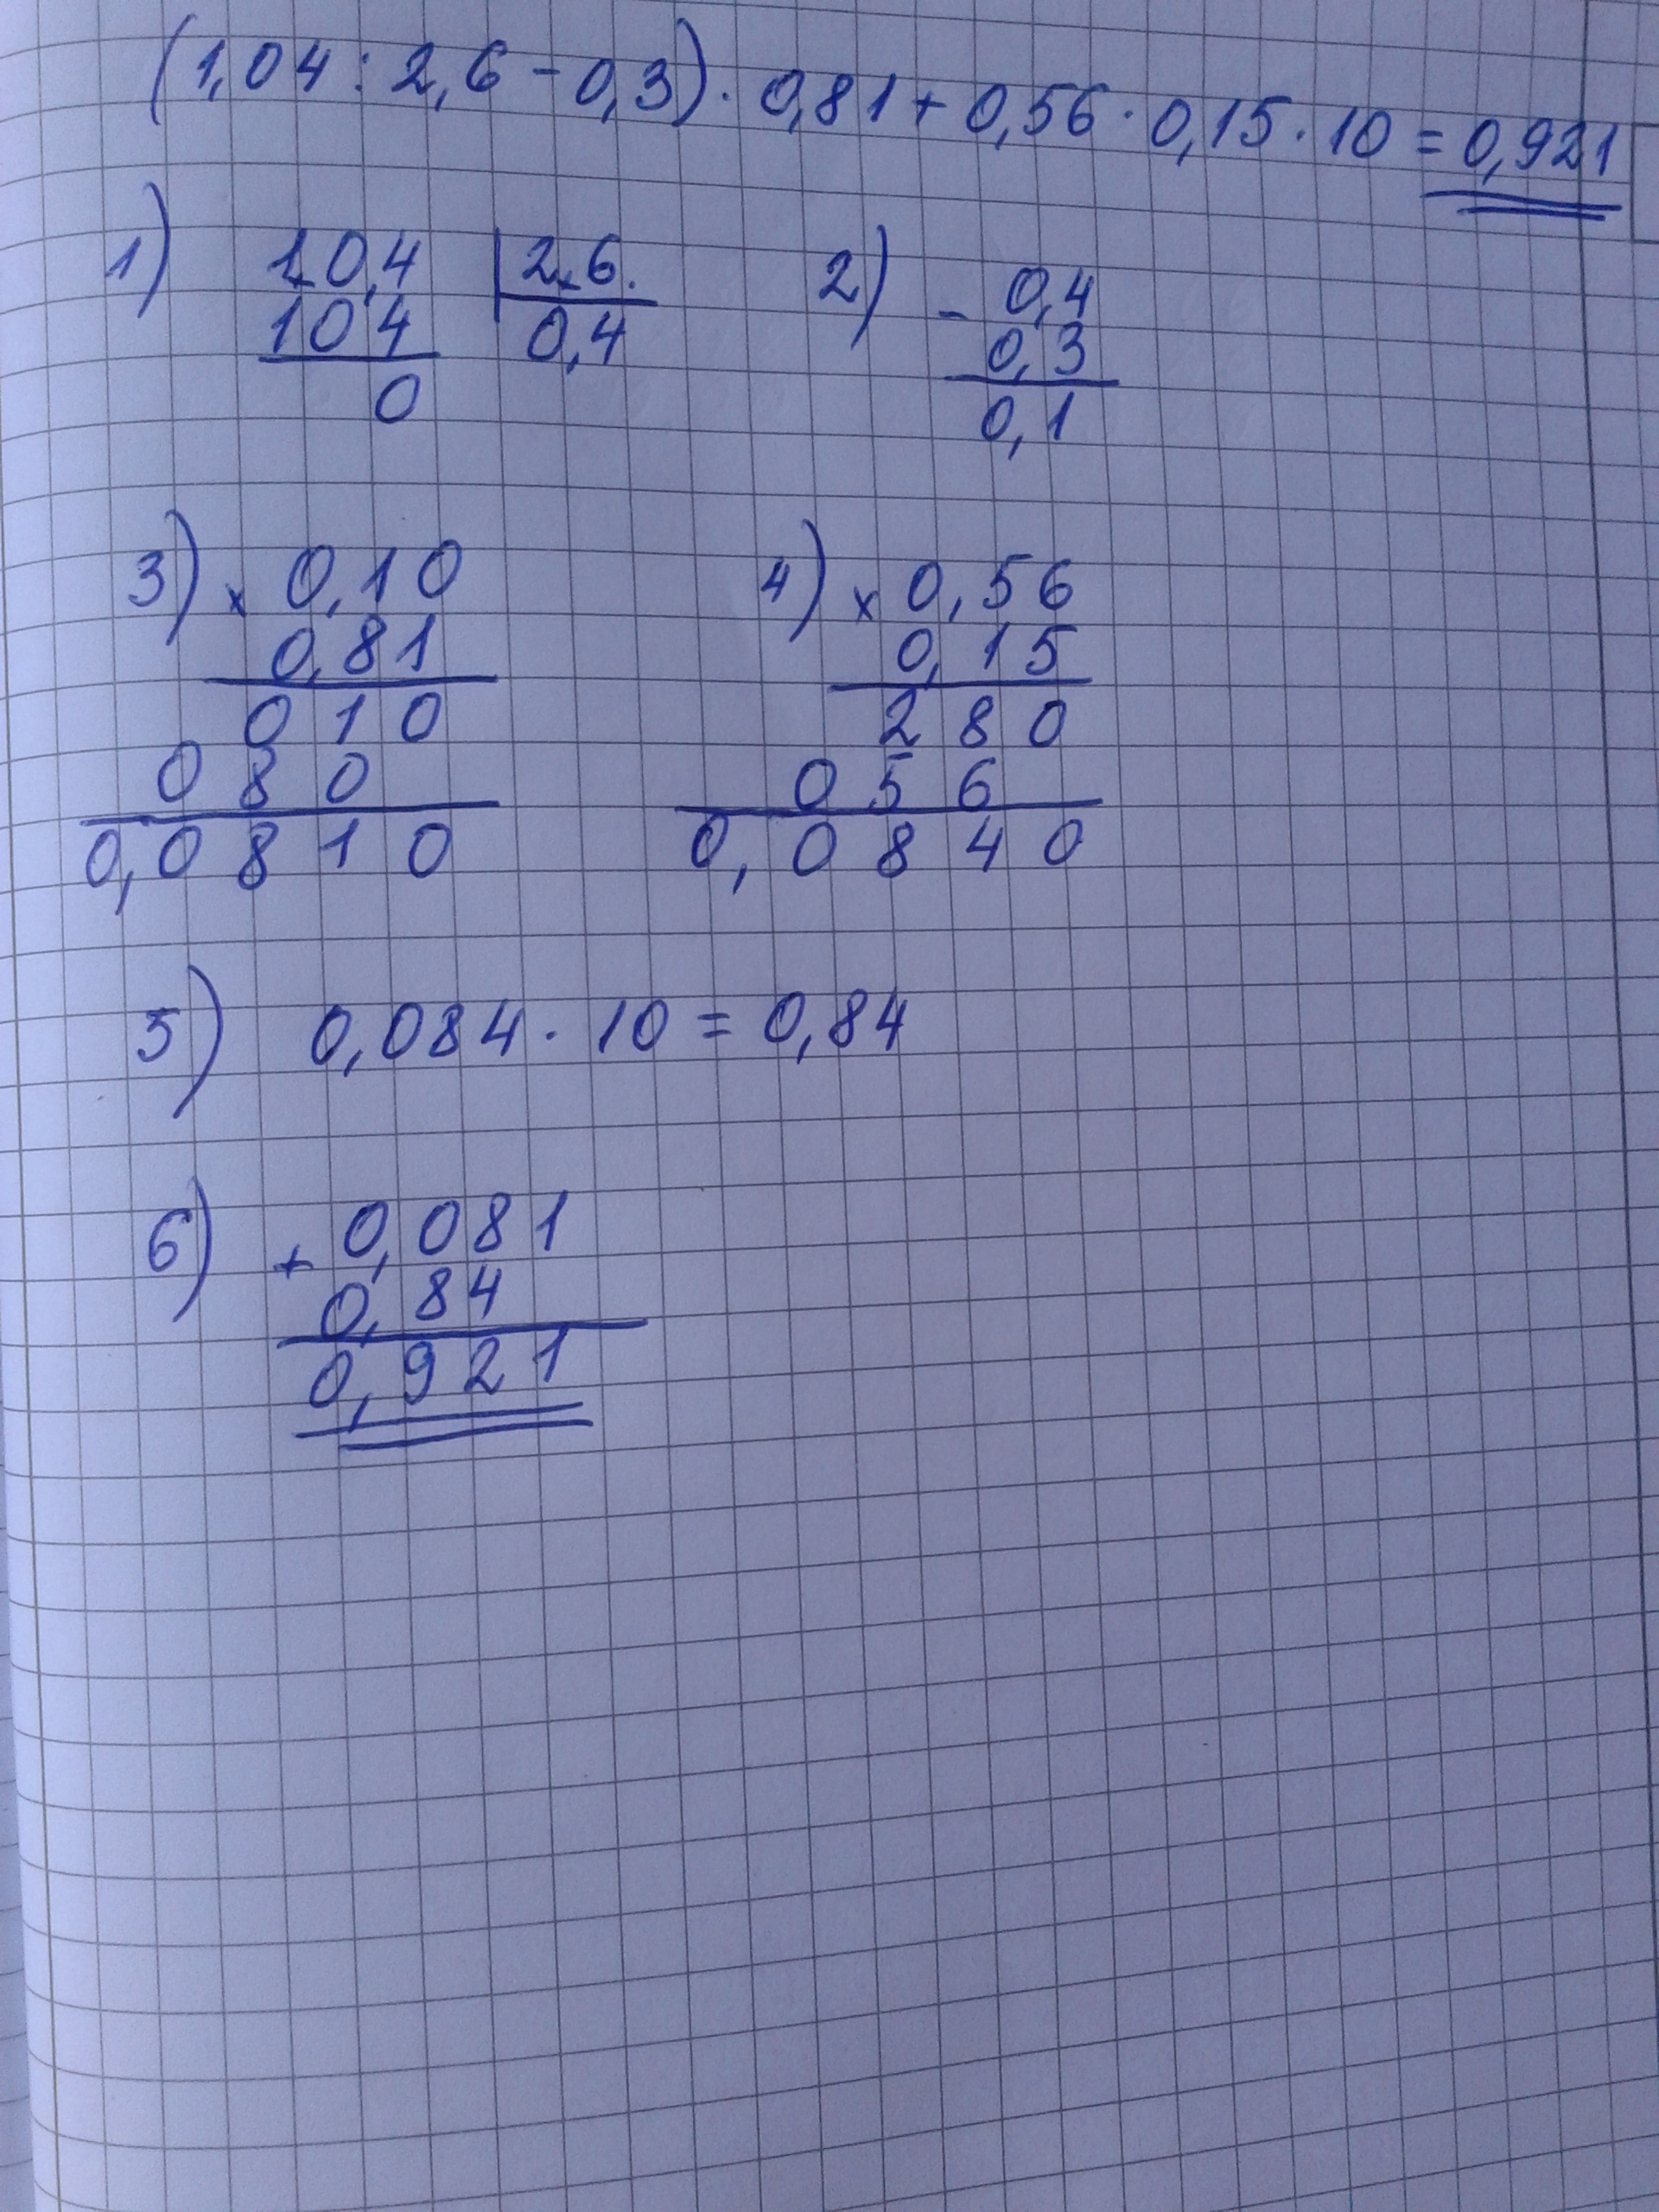 (1,04 : 2,6 - 0,3) · 0,81 + 0,56 · 0,15 · 10 = 0,921
1) 10,4 | 2,6.
104 0,4
0
2) - 0,4
0,3
0,1
3) x 0,10
0,81
0 1 0
0 8 0
0,0 8 1 0
4) x 0,56
0,15
2 8 0
0 5 6
0,0 8 4 0
5) 0,084 · 10 = 0,84
6) + 0,081
0,84
0,921